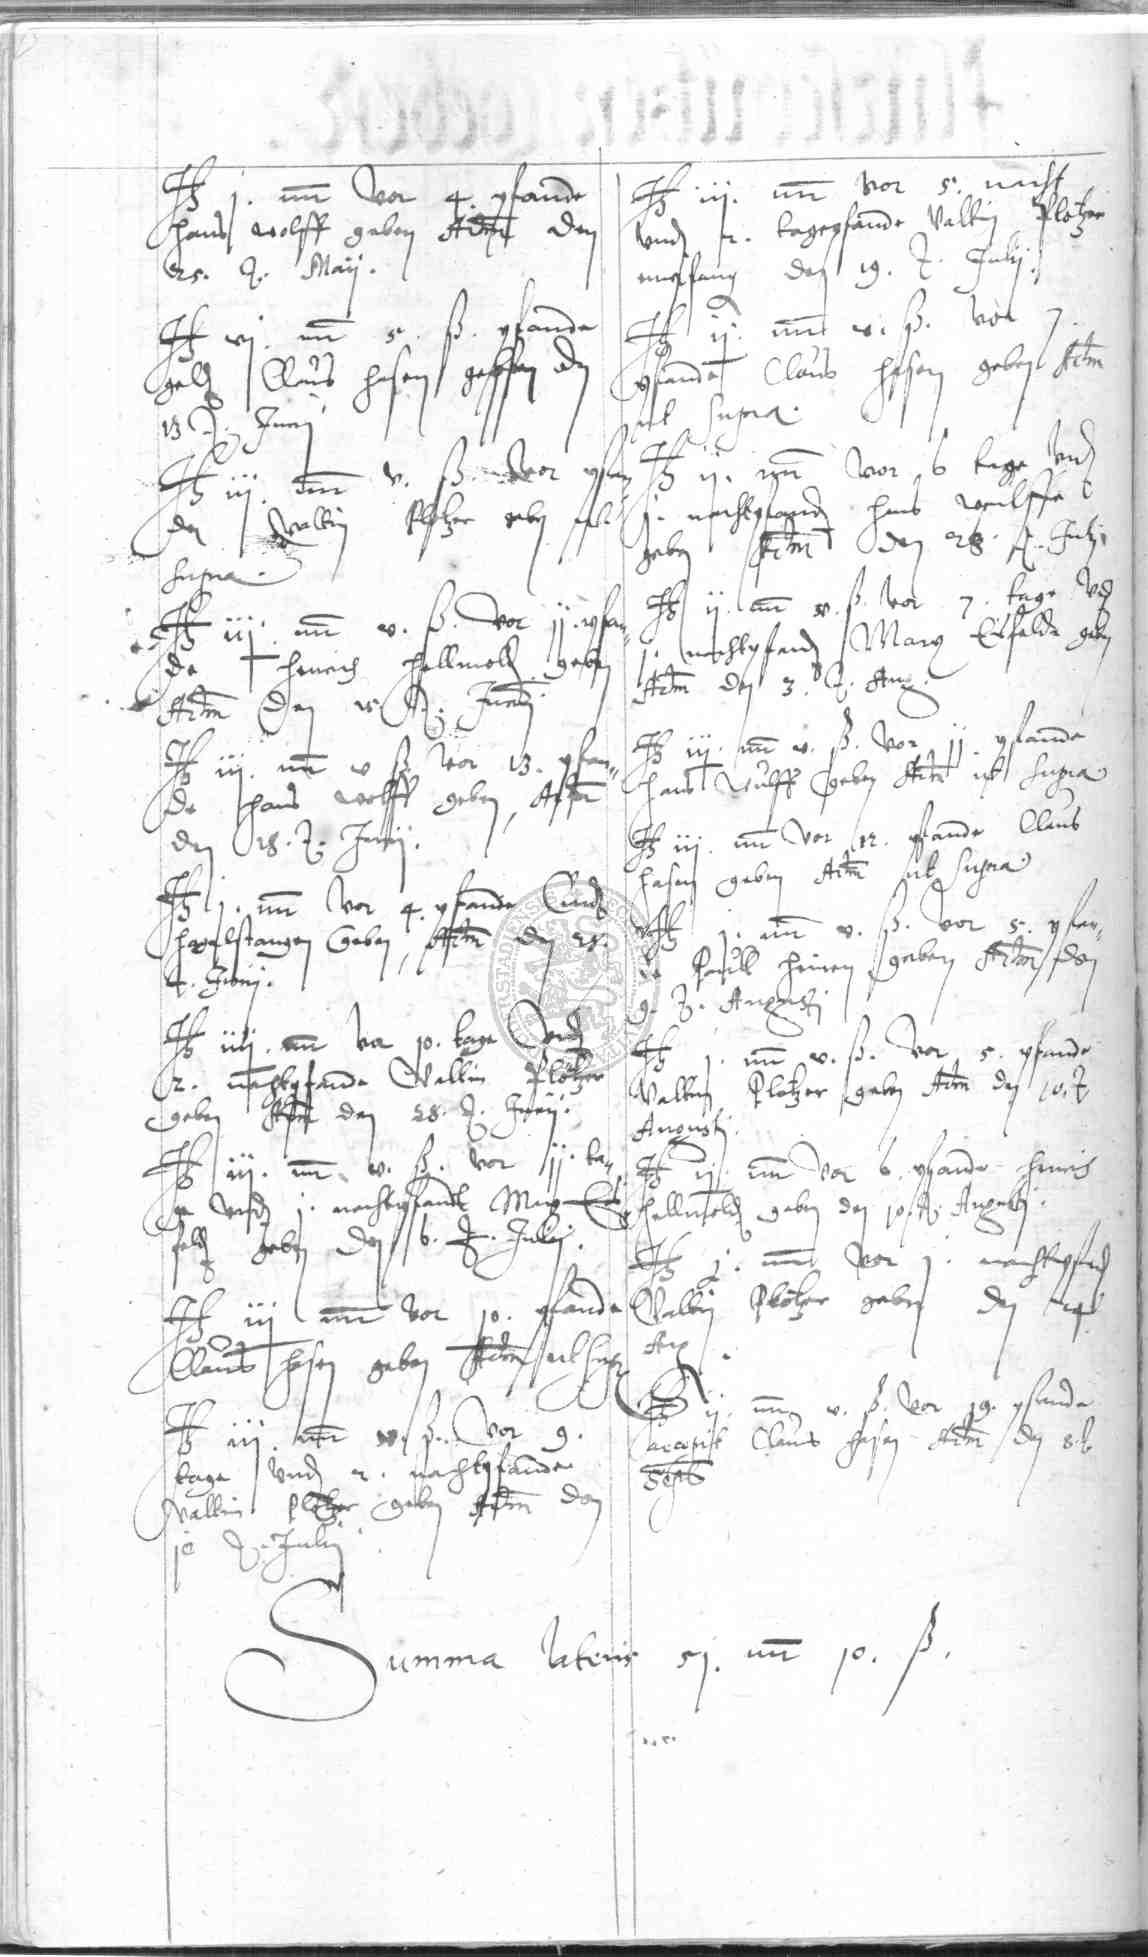 It j. mr vor 4. pfande
hans wolff geben Adm den
25. t. Maij.
It vj. mr 5. ß. pfande
geld Claus hasen geben den
13 t. Junij
It iij. mr v. ß. vor pfan
de Valtin Plotzer geben ut
supra.
It iij. mr v. ß. vor jj. pfan-
de henrich hellmold geben
Adm den 15 t. Junij
It iij. mr v ß vor 13. pfan-
de hans wolff geben, Adm
den 18. t. Junij.
It j. mr vor 4. pfande Curdt
hagelstangen geben, Adm den 25.
t. Junij.
It iiij. mr vor 10. tage Und
2. nachtpfande Valtin Plotzer
geben Adm den 28. t. Junij.
It iij. mr v. ß. vor jj. ta-
ge Und j. nachtpfandt Marx Eis
feld geben den 6. t. Julij.
It iij mr vor 10. pfande
Claus hasen geben Adm ut supra
It iij. mr v. ß. vor 9.
tage Und 2. nachtpfande
Valtin Plotzer geben Adm den
10 t. Julij
It iij. mr vor 5. nacht
Und 2. tagepfande Valtin Plotzer
den 19. t. Julij.
It ij. mr v. ß. vor 7.
pfande Claus hasen geben Adm
ut supra.
It ij. mr vor 6 tage Und
j. nachtpfand hans wulffe
geben Adm den 28. t. Julij
It ij. mr v. ß. vor 7. tage Und
j. nachtpfand Marx Eisfelde geben
Adm den 3. t. Aug.
It iij. mr v. ß. vor jj. pfande
hans Wulff geben Adm ut supra
It iij. mr vor 12. pfande Claus
hasen geben Adm ut supra
It j. mr v. ß. vor 5. pfan-
de Paull geben Adm den
9. t. Augusti
It j. mr v. ß. vor 5. pfande
Valtin Plotzer geben Adm den 10. t.
Augusti.
It ij mr vor 6. pfande henrich
hellmold geben den 10. t. Augusti.
It j. mr vor j. nachtpfand
Valtin Plotzer geben den
Aug.
It ij. mr v. ß. vor 19. pfande
accepit Claus hasen Adm den 8. t.
Septb
Summa lateris 51. mr 10. ß.